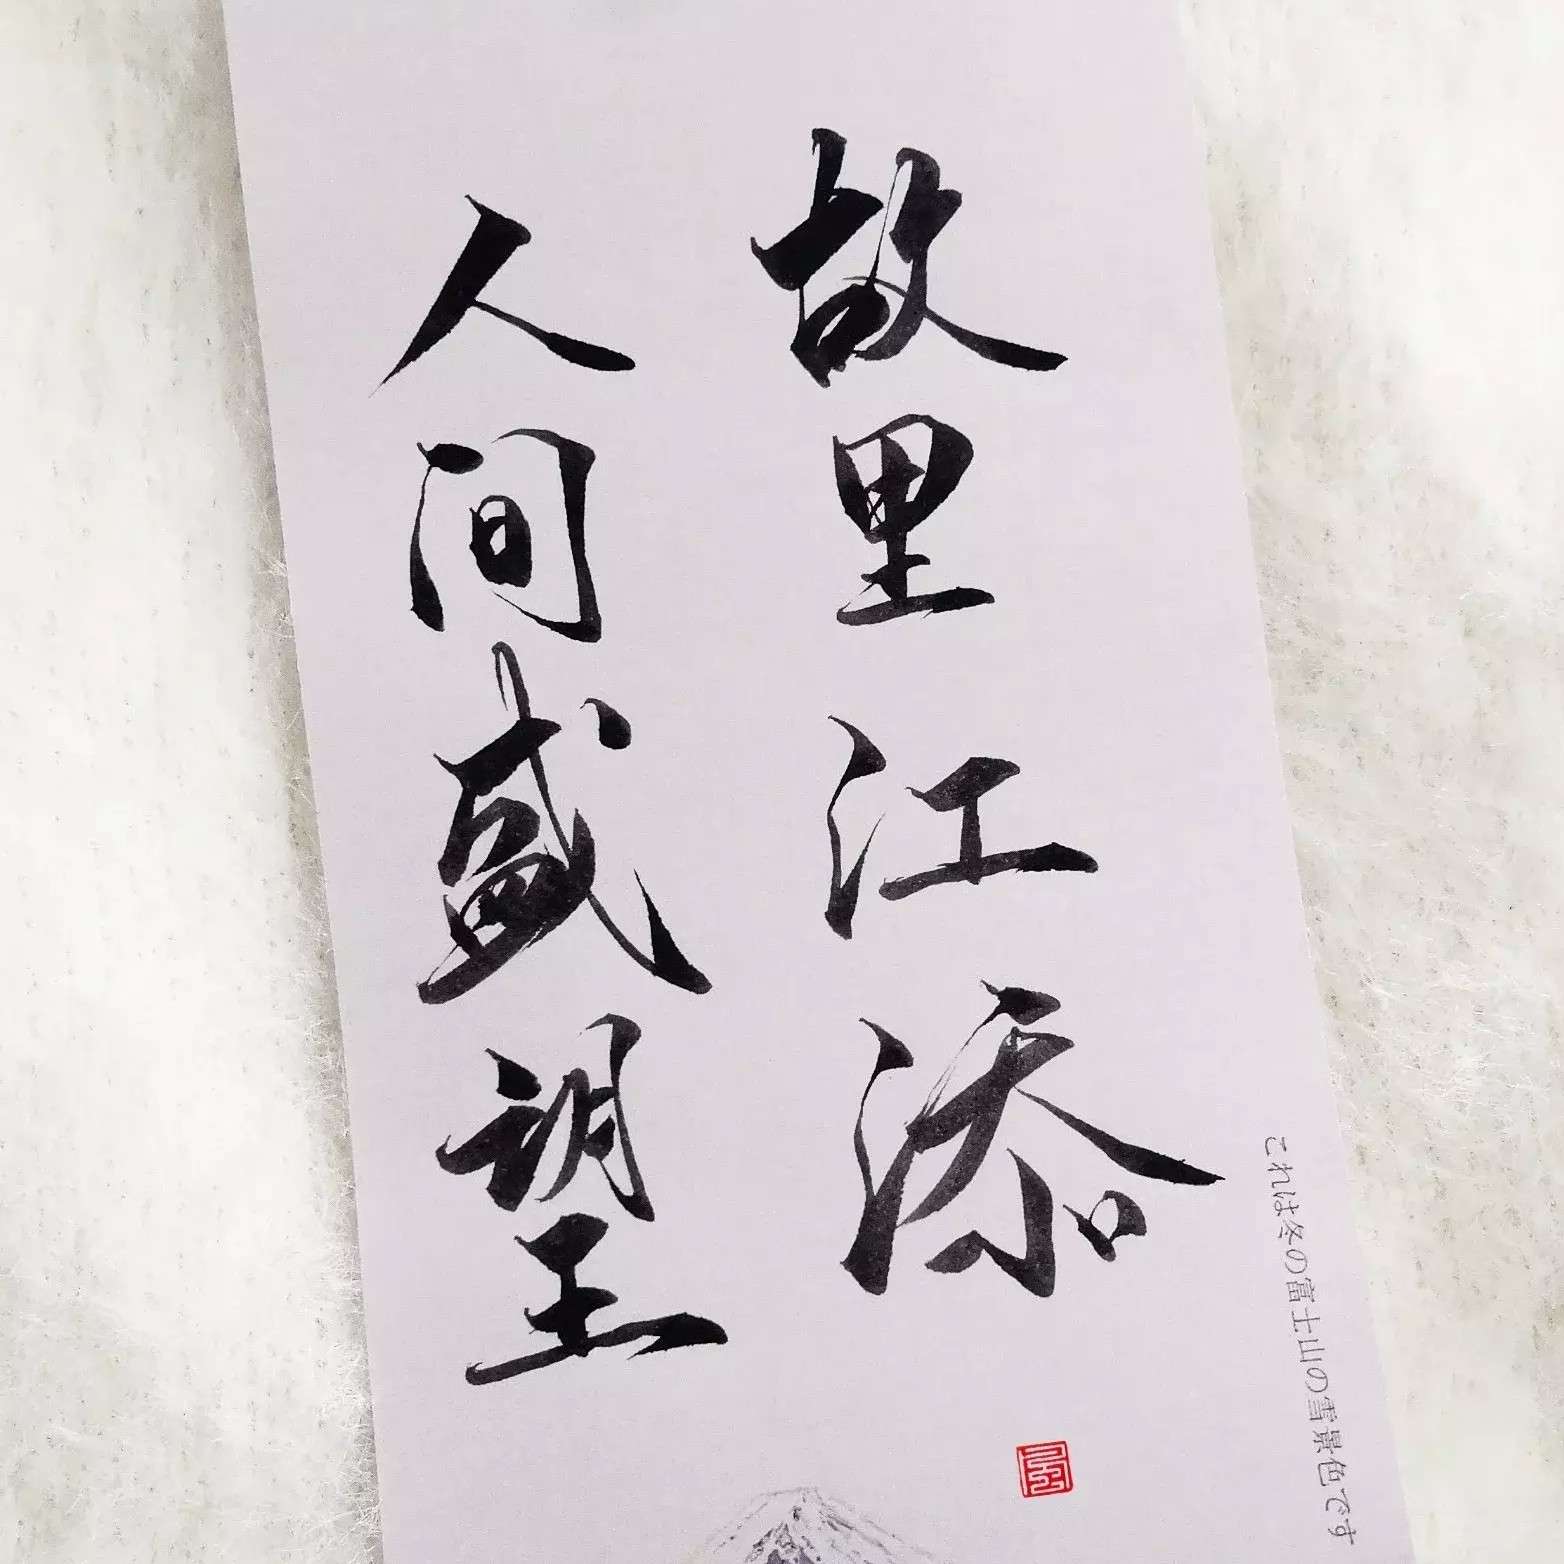 故里江添
人间盛望
これは冬の富士山の雪景色です